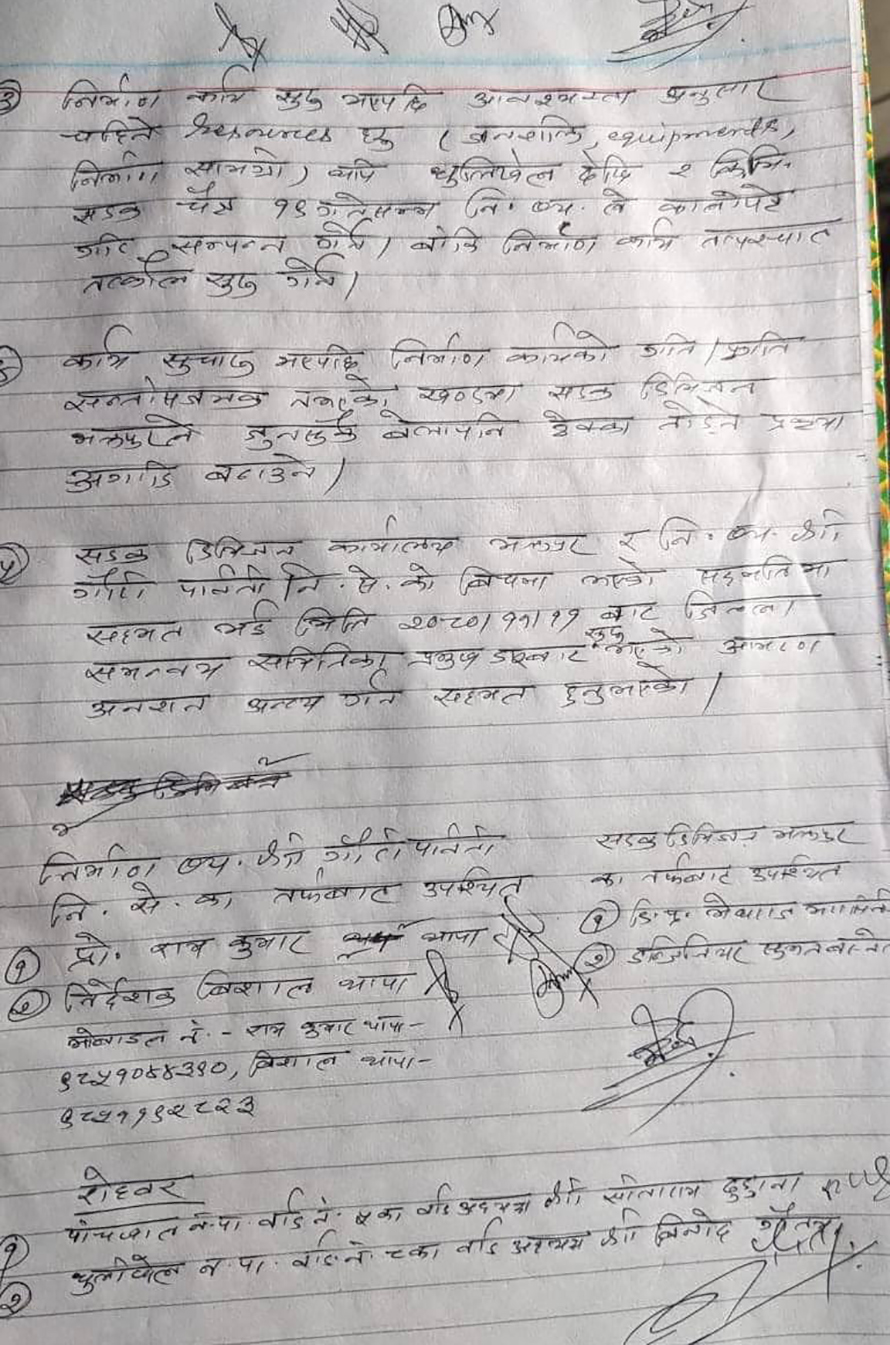 ३ निर्माण कार्य सुरु भएपछि आवश्यकता अनुसार
चाहिने Resources हरु (जनशक्ति, equipments,
निर्माण सामग्री) थपि धुलिखेल देखि २ कि.मि.
सडक चैत्र १९ गतेसम्म नि. व्य. ले कालोपत्रे
गरि सम्पन्न गर्ने। बाँकि निर्माण कार्य तत्पश्चात
तत्काल सुरु गर्ने।
४ कार्य सुचारु भएपछि निर्माण कार्यको गति/प्रगति
सन्तोषजनक नभएको खण्डमा सडक डिभिजन
भक्तपुरले जुनसुकै बेलापनि ठेक्का तोड्ने प्रकृया
अगाडि बढाउने।
५ सडक डिभिजन कार्यालय भक्तपुर र नि. व्य. श्री
गौरी पार्वती नि. से. को बिचमा भएको सहमतिमा
सहमत भई मिति २०८०/११/११ बाट जिल्ला
समन्वय समितिका प्रमुख ज्यूबाट सुरु भएको आमरण
अनशन अन्त्य गर्न सहमत हुनुभएको।
निर्माण व्य. श्री गौरी पार्वती
नि. से. का तर्फबाट उपस्थित
१ प्रो. राम कुमार थापा
२ निर्देशक बिशाल थापा
मोबाइल नं. - राम कुमार थापा-
९८५१०४४३९०, बिशाल थापा-
९८५११९२८२३
सडक डिभिजन भक्तपुर
का तर्फबाट उपस्थित
१ डि.प्र.
२ इन्जिनियर
रोहवर
१ पांचखाल न.पा. वार्ड नं. ५ का वार्ड अध्यक्ष श्री सीताराम
२ धुलीखेल न.पा. वार्ड नं. ८ का वार्ड अध्यक्ष श्री बिनोद